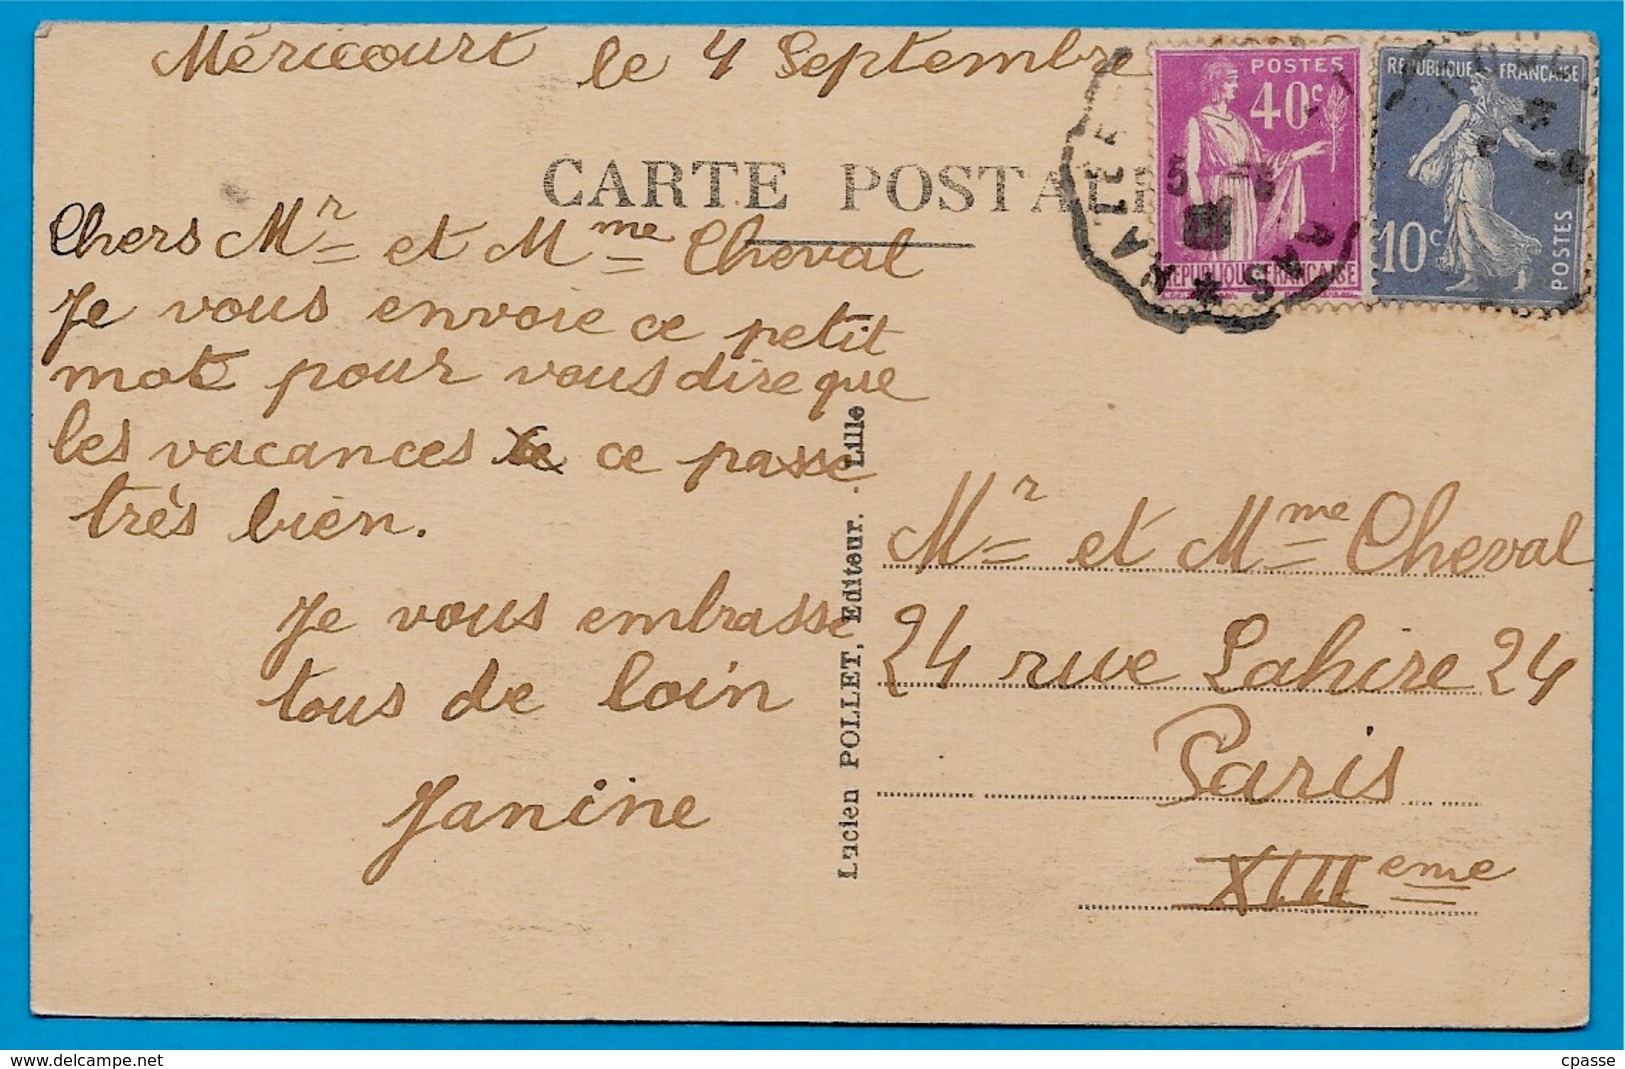 Méricourt le 4 Septembre
CARTE POSTALE
POSTES
40c
REPUBLIQUE FRANÇAISE
REPUBLIQUE FRANÇAISE
10c
POSTES
Chers Mr et Mme Cheval
Je vous envoie ce petit
mot pour vous dire que
les vacances ce passe
très bien.
Je vous embrasse
tous de loin
Janine
Lucien POLLET, Editeur. - Lille
Mr et Mme Cheval
24 rue Lahire 24
Paris
XIIIeme
cpasse